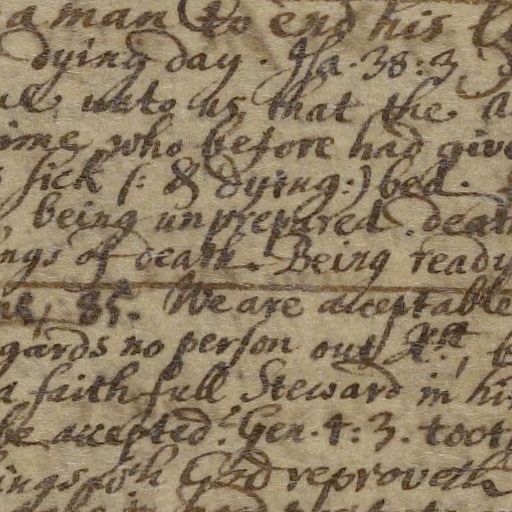 a man to end his
dying day. Isa. 38:3,
unto us, that the
time, who before had give
sick (: & dying:) bed.
, being unprepared. death
ngs of death. Being ready
85. We are acceptable
gards no person out Xst,
a faithfull Steward in his
be accepted. Gen. 4:3. 
ings wch God reproveth